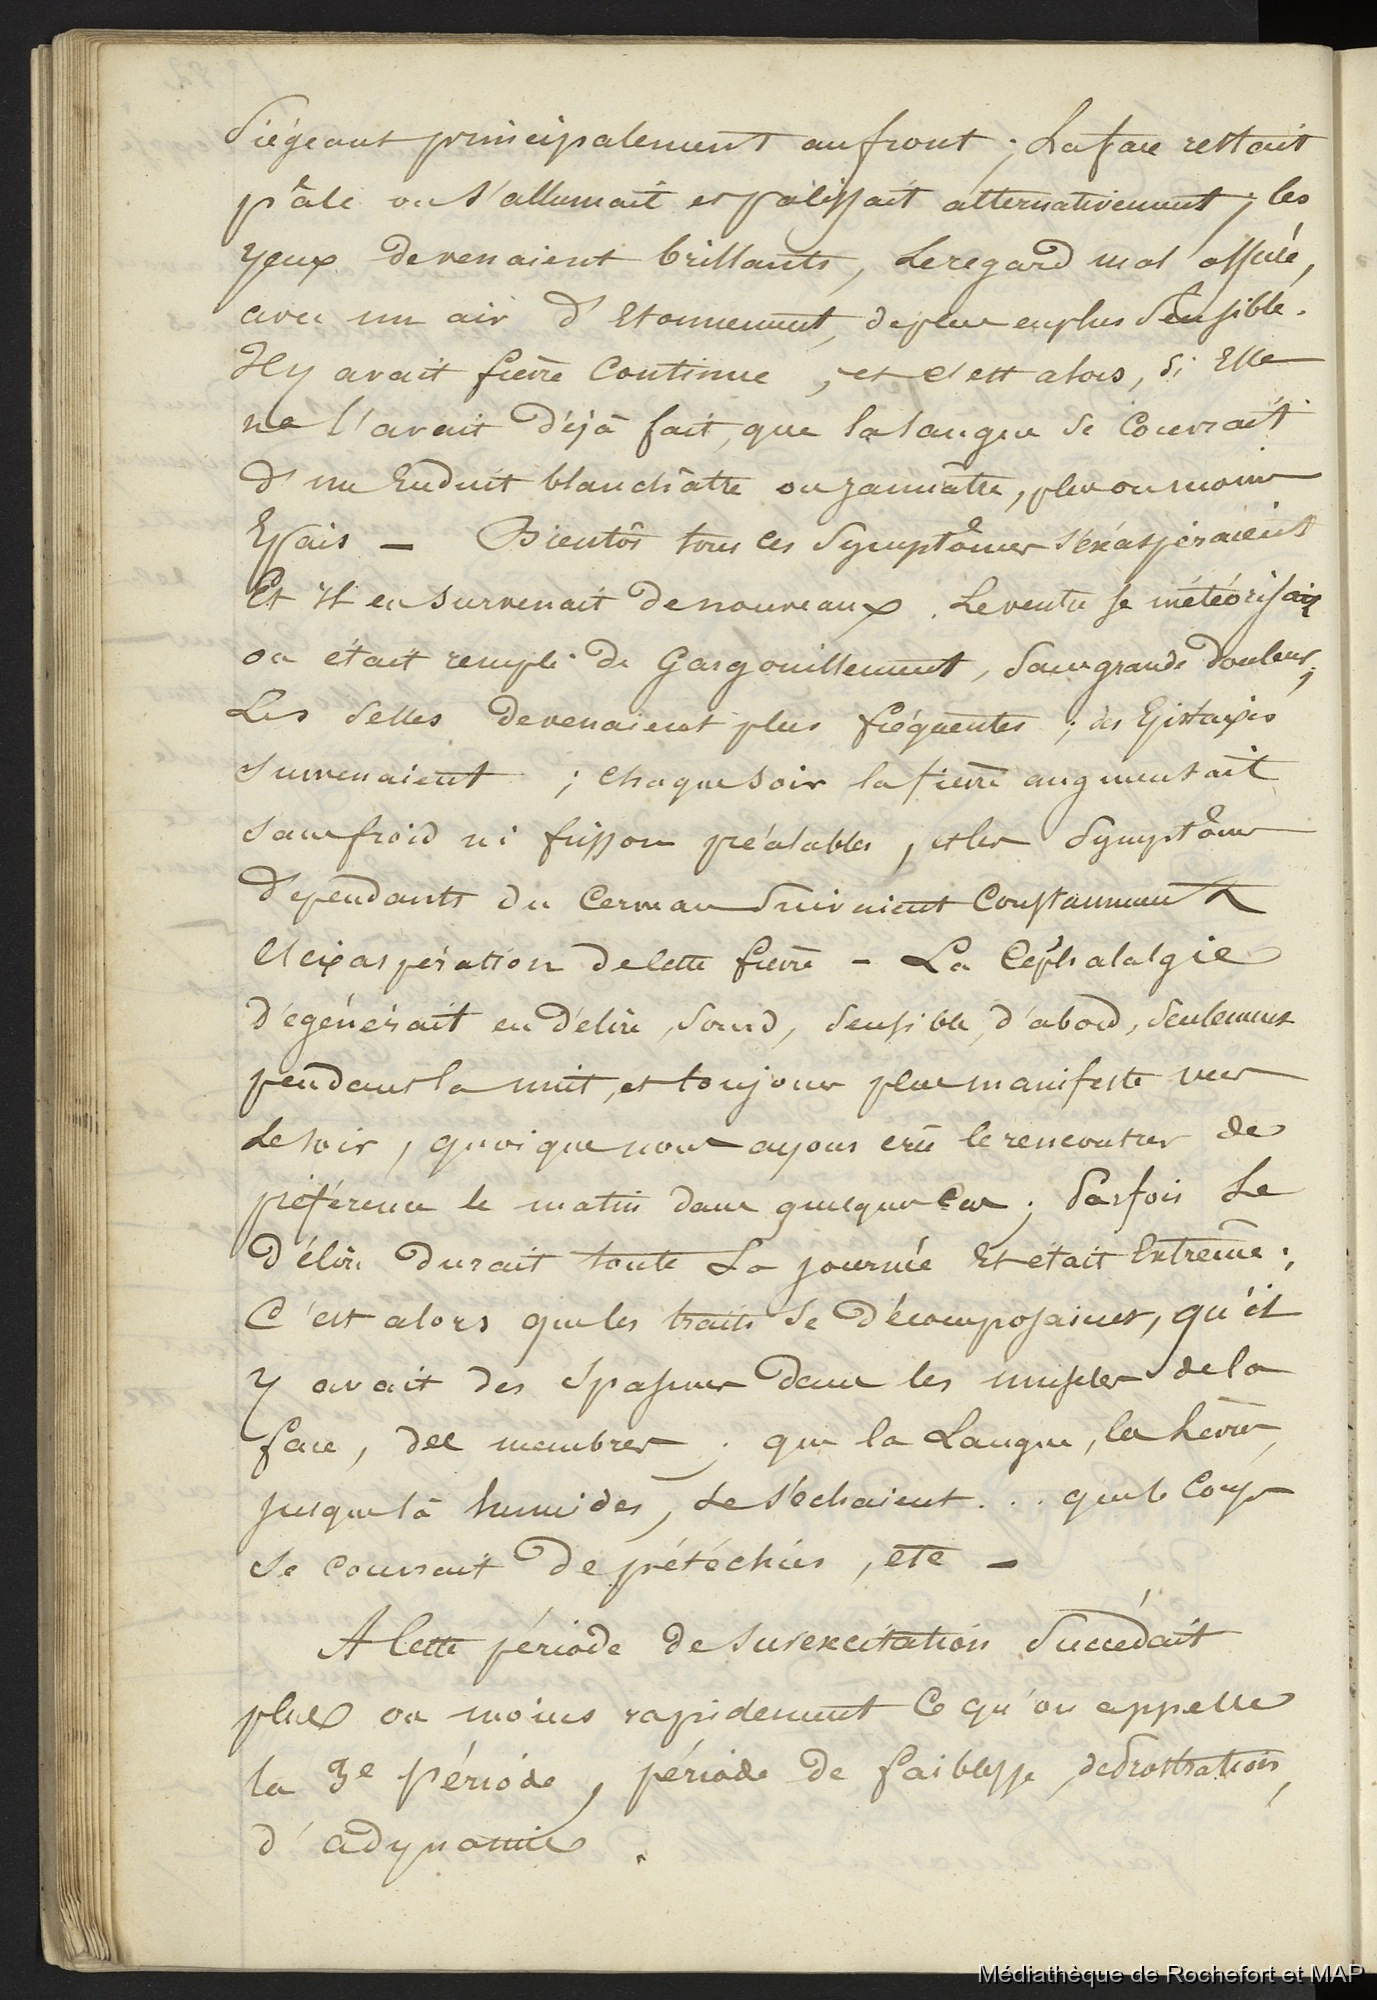 Siégeant principalement au front ; La face restait
pâle ou s'allumait et pâlissait alternativement ; les
yeux devenaient brillants, Le regard mal assuré,
avec un air d'étonnement, de plus en plus Sensible.
Il y avait fièvre Continue, et c'est alors, si Elle
ne l'avait déjà fait, que la langue se Couvrait
d'un Enduit blanchâtre ou jaunâtre, plus ou moins
Epais — Bientôt tous ces Symptômes s'éxaspéraient
Et Il en survenait de nouveaux. Le ventre se météorisait
ou était rempli de Gargouillement, Sans grande douleur ;
Les Selles devenaient plus fréquentes ; des Epistaxis
Survenaient ; Chaque soir la fièvre augmentait
sans froid ni frisson préalables, et les Symptômes
Dépendants du Cerveau Suivaient Constamment
L'exaspération de Cette fièvre — La Céphalalgie
dégénérait en délire Sourd, Sensible d'abord, Seulement
pendant la nuit, et toujours plus manifeste vers
Le soir, quoique nous ayons crû le rencontrer de
préférence le matin dans quelques Cas ; Parfois Le
délire durait toute La journée Et était Extrême ;
C'est alors que les traits Se décomposaient, qu'il
Y avait des Spasmes dans les muscles de la
face, des membres ; que la Langue, les lèvres,
jusque là humides, Se séchaient... que le Corps
Se couvrait de pétéchies, etc —
A Cette période de surexcitation Succédait
plus ou moins rapidement Ce qu'on appelle
la 3e période, période de faiblesse, de Prostration,
d'adynamie.
Médiathèque de Rochefort et MAP